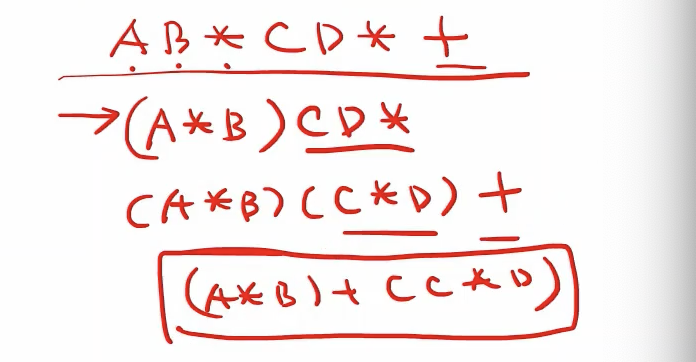 A B * C D * +
→ (A * B) C D *
(A * B) (C * D) +
(A * B) + (C * D)